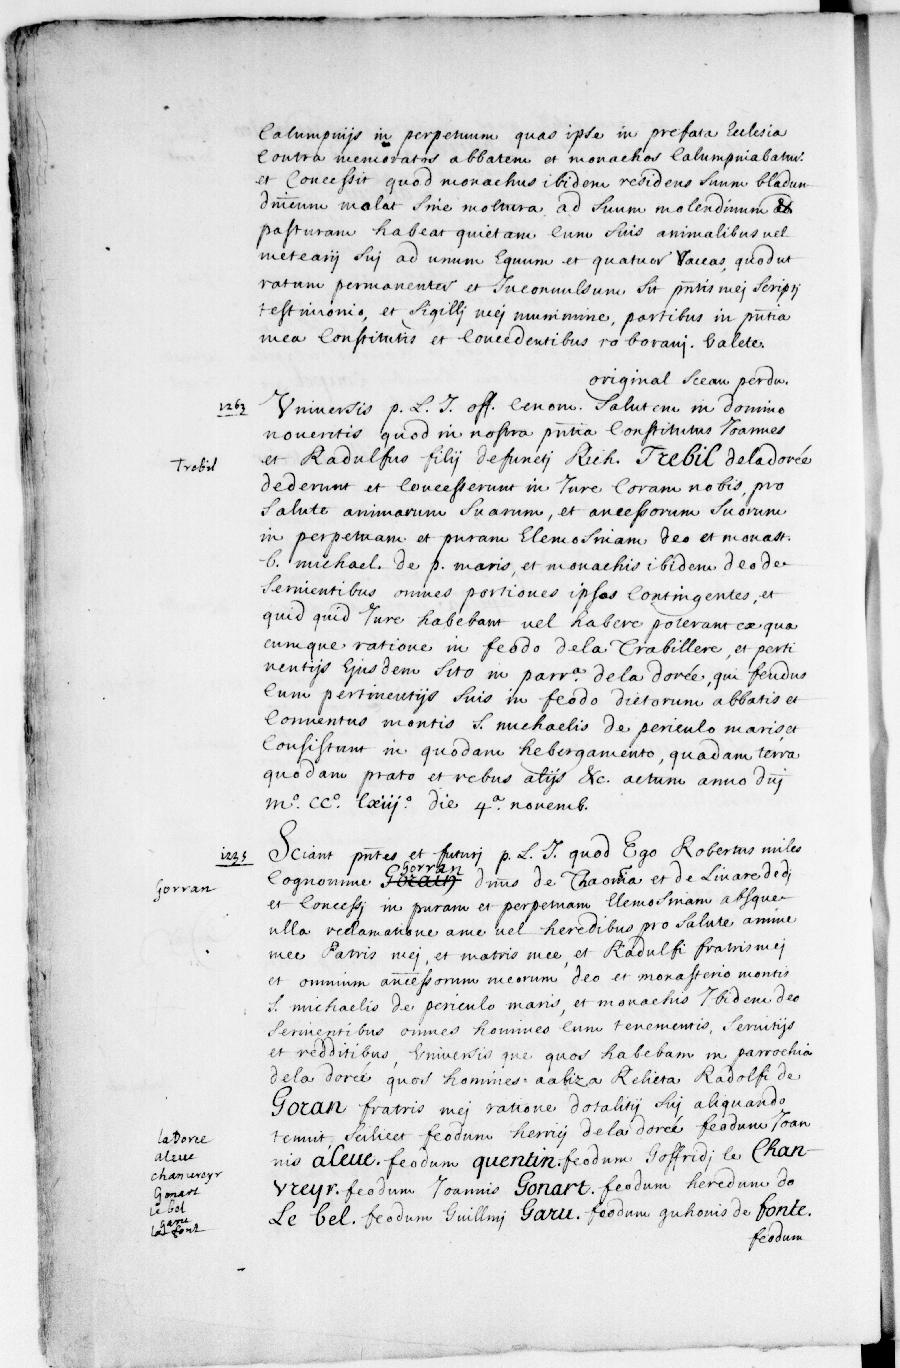 Calumpnijs in perpetuum quas ipse in prefata Ecclesia
Contra memoratos abbatem et monachos Calumpniabatur.
et Concessit quod monachus ibidem residens suum bladum
dn̄icum molat sine moltura ad suum molendinum &
pasturam habeat quietam cum suis animalibus vel
metearij suj ad unum Equum et quatuor Vaccas, quod ut
ratum permanenter et Inconuulsum sit pn̄tis mej scriptj
testimonio, et sigillj mej munimine, partibus in pn̄tia
mea Constitutis et Concedentibus roboravj. Valete.
original sceau perdu.
1263 Vniversis p. L. J. off. Cenom. Salutem in domino
noveritis quod in nostra pn̄tia Constitutus Joannes
Trebil et Radulfus filij defunctj Rich. Trebil deladorée
dederunt et Concesserunt in Jure Coram nobis, pro
salute animarum suarum, et ancessorum suorum
in perpetuam et puram Elemosinam deo et monast.
b. michael. de p. maris, et monachis ibidem deo de
servientibus omnes portiones ipsos Contingentes, et
quid quid Jure habebant vel habere poterant ex qua
cumque ratione in feodo dela Trabillere, et perti
nentijs Ejusdem sito in parra. dela dorée, qui feudus
Cum pertinentijs suis in feodo dictorum abbatis et
Conventus montis S. michaelis de periculo maris et
Consistunt in quodam hebergamento, quadam terra
quodam prato et rebus alijs &c. actum anno dn̄j
mº. CCº. lxiijº. die 4ª. novemb.
1235 Sciant pn̄tes et futurj p. L. J. quod Ego Robertus miles
Gorran Cognomine Gorain Gorran dn̄us de Thaoma et de Livare dedj
et Concessj in puram et perpetuam Elemosinam absque
ulla reclamatione a me vel heredibus pro salute anime
mee Patris mej, et matris mee, et Radulfi fratris mej
et omnium an̄cessorum meorum deo et monasterio montis
S. michaelis de periculo maris, et monachis Ibidem deo
servientibus omnes homines cum tenementis, servitijs
et redditibus, Universis que quos habebam in parrochia
dela dorée quos homines aaliza Relicta Radolfi de
Goran fratris mej ratione dotalitij suj aliquando
la Doree tenuit scilicet feodum herrici dela dorée feodum Joan
aleue nis aleue. feodum quentin. feodum Goffridj le Chan-
chanvreyr
Gonart vreyr. feodum Joannis Gonart. feodum heredum do
le bel
garu Le bel. feodum Guillmj Garu. feodum guhonis de fonte.
la font
feodum